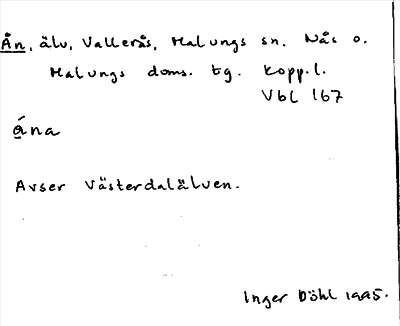 Ån, älv, Vallerås, Malungs sn. Nås o.
Malungs doms. tg. Kopp. l.
Vbl 167
åna
Avser Västerdalälven.
Inger Döhl 1995.